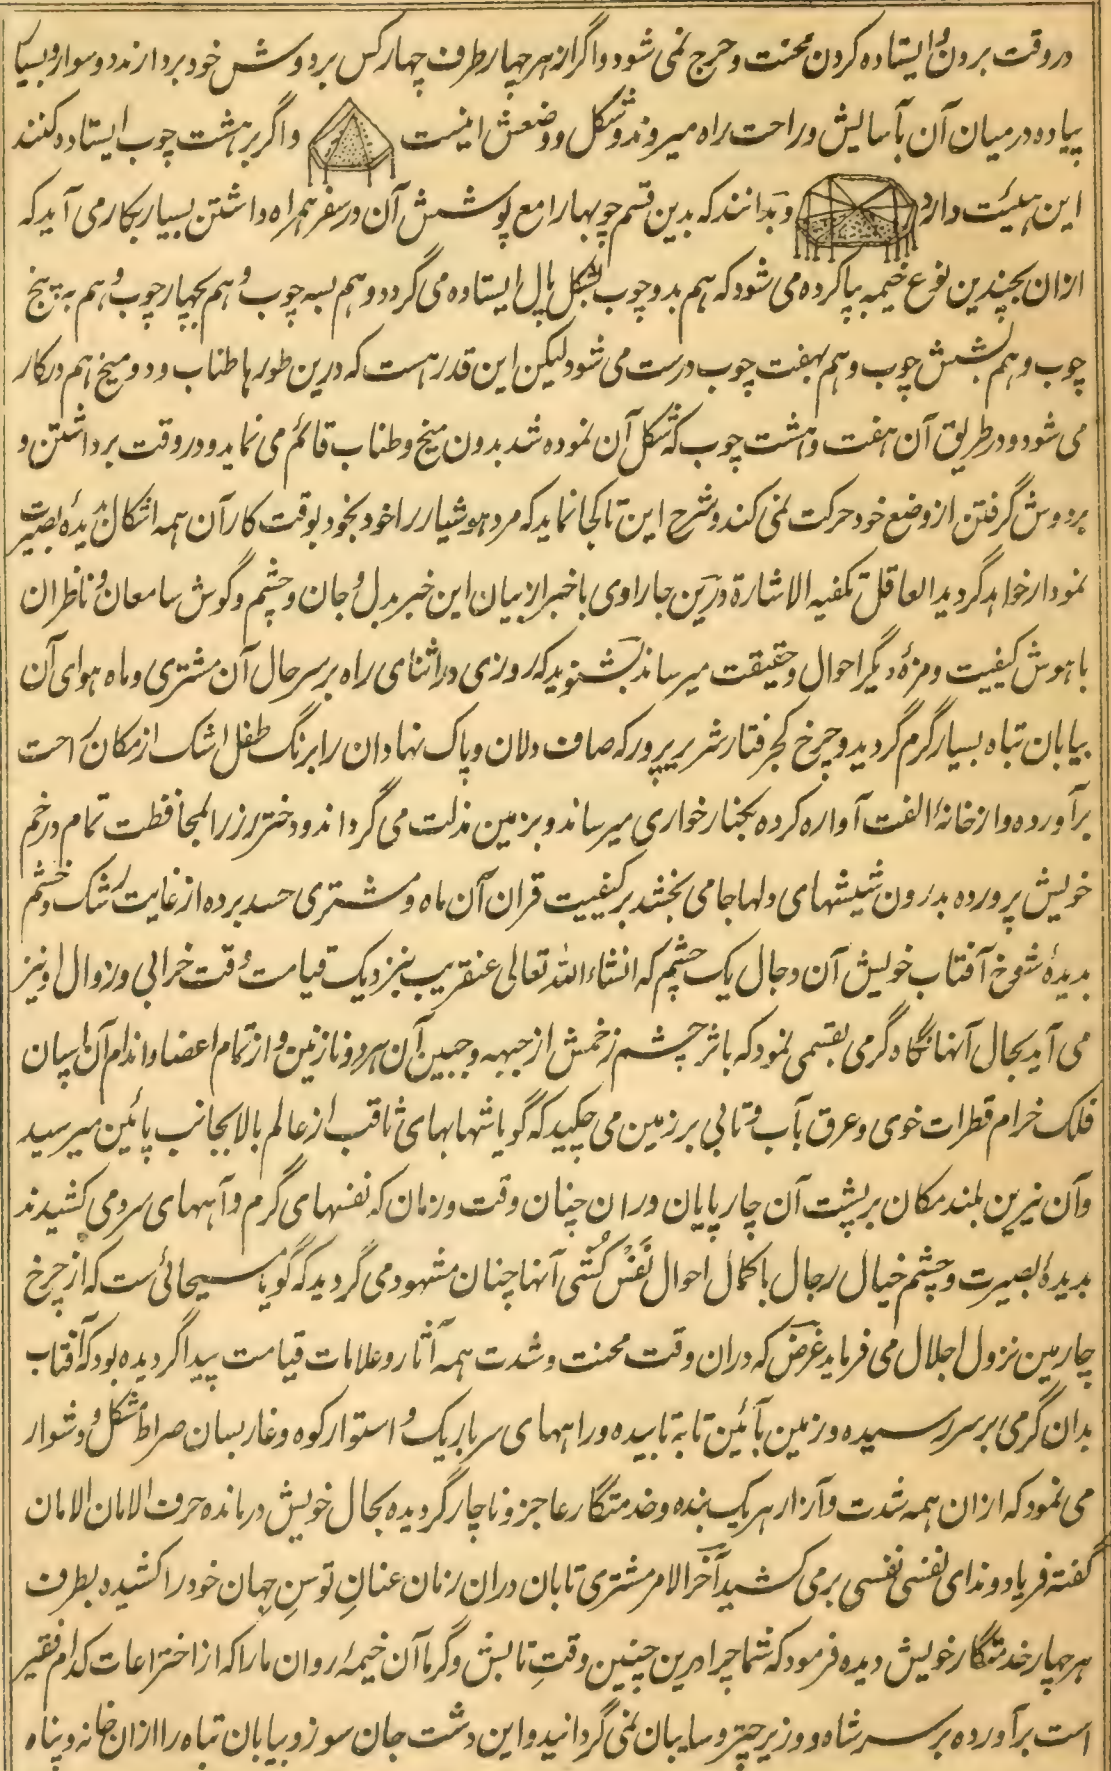 در وقت بردن و ایستاده کردن محنت و حرج نمی شود و اگر از هر چهار طرف چهار کس بر دوش خود بردارند دو سوار و بسیار
پیاده در میان آن بآسایش و راحت راه میروند و شکل و وضعش اینست و اگر بر هشت چوب ایستاده کنند
این هیئت دارد و بدانند که بدین قسم چوبها را مع پوشش آن در سفر همراه داشتن بسیار بکار می آید که
ازان بچندین نوع خیمه بپا کرده می شود که هم بدو چوب بشکل پال ایستاده می گردد و هم بسه چوب و هم بچهار چوب و هم به پنج
چوب و هم بشش چوب و هم بهفت چوب درست می شود لیکن این قدر هست که درین طورها طناب و دو میخ هم درکار
می شود و در طریق آن هفت و هشت چوب که شکل آن نموده شد بدون میخ و طناب قائم می نماید و در وقت برداشتن و
بر دوش گرفتن از وضع خود حرکت نمی کند و شرح این تا کجا نماید که مرد هوشیار را خود بخود بوقت کار آن همه اشکال بدیدهٔ بصیرت
نمودار خواهد گردید العاقل تکفیه الاشارة درین جا راوی با خبر از بیان این خبر بدل و جان و چشم و گوش سامعان و ناظران
با هوش کیفیت و مزهٔ دیگر احوال و حقیقت میرساند بشنوید که روزی در اثنای راه بر سر حال آن مشتری و ماه هوای آن
بیابان تباه بسیار گرم گردید و چرخ کجرفتار شریر پرور که صاف دلان و پاک نهادان را برنگ طفل اشک از مکان راحت
برآورده و از خانهٔ الفت آواره کرده بخنار خواری میرساند و بزمین مذلت می گرداند و دختر رز را بمحافظت تمام در خم
خویش پرورده بدرون شیشهای دلها جا می بخشد بر کیفیت قران آن ماه و مشتری حسد برده از غایت رشک و خشم
بدیدهٔ شوخ آفتاب خویش آن دجال یک چشم که انشاء الله تعالی عنقریب بنزدیک قیامت وقت خرابی و زوال او نیز
می آید بحال آنها نگاه گرمی بقسمی نمود که باثر چشم زخمش از جبهه و جبین آن هر دو نازنین و از تمام اعضا و اندام آن اسپان
فلک خرام قطرات خوی و عرق بآب و تابی بر زمین می چکید که گویا شهابهای ثاقب از عالم بالا بجانب پائین میرسید
وآن نیرین بلند مکان بر پشت آن چارپایان دران چنان وقت و زمان که نفسهای گرم و آههای سرد می کشیدند
بدیدهٔ بصیرت و چشم خیال رجال با کمال احوال نفس کشی آنها چنان مشهود می گردید که گویا مسیحائی ست که از چرخ
چارمین نزول اجلال می فرماید غرض که دران وقت محنت و شدت همه آثار و علامات قیامت پیدا گردیده بود که آفتاب
بدان گرمی بر سر رسیده و زمین بآئین تابه تابیده و راههای سر باریک و استوار کوه و غار بسان صراط مشکل و دشوار
می نمود که ازان همه شدت و آزار هر یک بنده و خدمتگار عاجز و ناچار گردیده بحال خویش درمانده حرف الامان الامان
گفته فریاد و ندای نفسی نفسی برمی کشید آخر الامر مشتری تابان دران زمان عنان توسن جهان خود را کشیده بطرف
هر چهار خدمتگار خویش دیده فرمود که شما چرا درین چنین وقت تابش و گرما آن خیمهٔ روان ما را که از اختراعات کدام فقیر
است برآورده بر سر شاه و وزیر چتر و سایبان نمی گردانید و این دشت جان سوز و بیابان تباه را ازان خانه و پناه